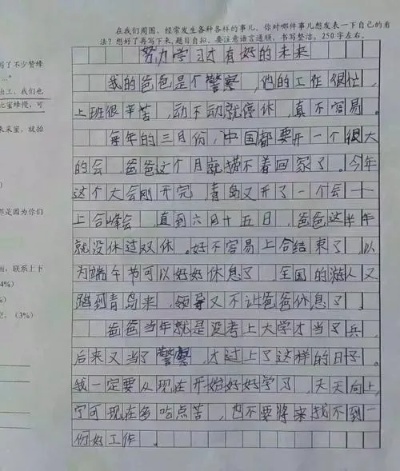 在我们周围，经常发生各种各样的事儿，你对哪件事儿想发表一下自己的看
法？想好了再写下来，题目自拟，要注意语言通顺，书写整洁。250字左右。
努力学习才有好的未来
我的爸爸是个警察，他的工作很忙，
上班很辛苦，动不动就停休，真不容易。
每年的三月份，中国都要开一个很大
的会，爸爸这个月就捞不着回家了。今年
这个大会刚开完，青岛又开了一个会——
上合峰会，直到六月十五日，爸爸这半年
就没休过双休。好不容易上合结束了，以
为端午节可以好好休息了，全国的游人又
蹿到青岛来，领导又不让爸爸休息了。
爸爸当年就是没考上大学才当了兵，
后来又当了警察，才过上了这样的日子。
我一定要从现在开始好好学习，天天向上，
宁可现在多吃点苦，也不要将来找不到一
份好工作。
写了不少赞峰
工，我们也
蜜蜂慢，可
来采蜜，就给
都是因为你们
联系上下
4%）
（3%）